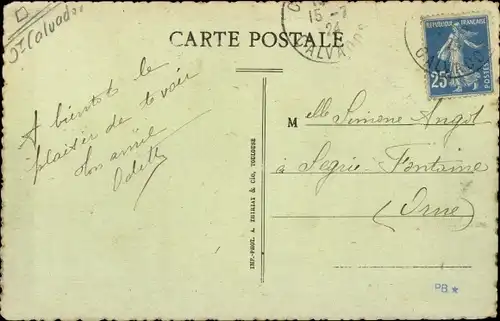 Calvados
CARTE POSTALE
15-7
24
CALVADOS
REPUBLIQUE FRANÇAISE
25c
POSTES
A bientôt le
plaisir de te voir
Ton amie
Odette
Melle Simone Angot
à Segrie-Fontaine
(Orne)
IMP.-PHOT. A. THIRIAT & Cie, TOULOUSE
PB ★